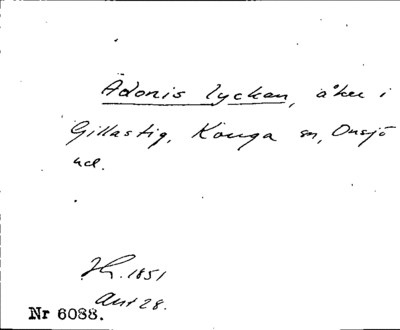 Adonis lyckan, åker i
Gillastig, Konga sn, Onsjö
hd.
1851
Ant 28.
Nr 6088.